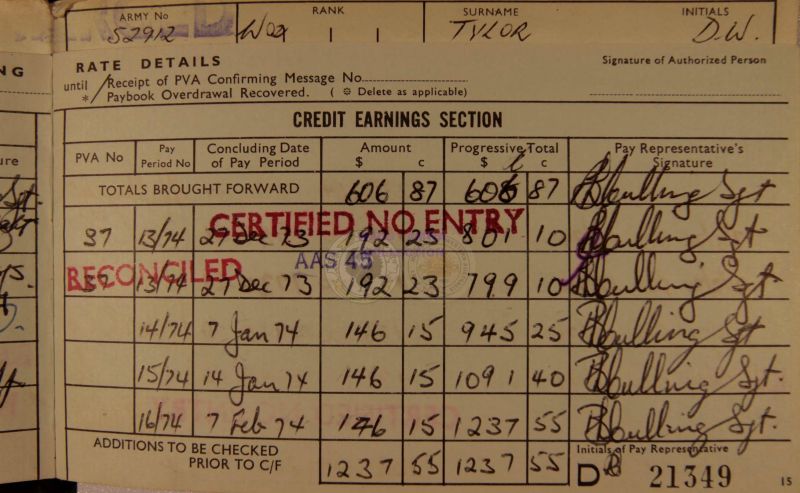 ARMY No RANK SURNAME INITIALS
52912 WO2 TYLOR D.W.
RATE DETAILS Signature of Authorized Person
until / Receipt of PVA Confirming Message No.
* / Paybook Overdrawal Recovered. ( * Delete as applicable)
CREDIT EARNINGS SECTION
PVA No Pay Period No Concluding Date of Pay Period Amount $ c Progressive Total $ c Pay Representative's Signature
TOTALS BROUGHT FORWARD 606 87 606 87 Sgt
CERTIFIED NO ENTRY
37 13/74 27 Dec 73 192 23 801 10 Sgt
RECONCILED AAS 45
37 13/74 27 Dec 73 192 23 799 10 Sgt
14/74 7 Jan 74 146 15 945 25 Sgt
15/74 14 Jan 74 146 15 1091 40 Sgt.
16/74 7 Feb 74 146 15 1237 55 Sgt.
ADDITIONS TO BE CHECKED PRIOR TO C/F 1237 55 1237 55 Initials of Pay Representative
D 21349
15